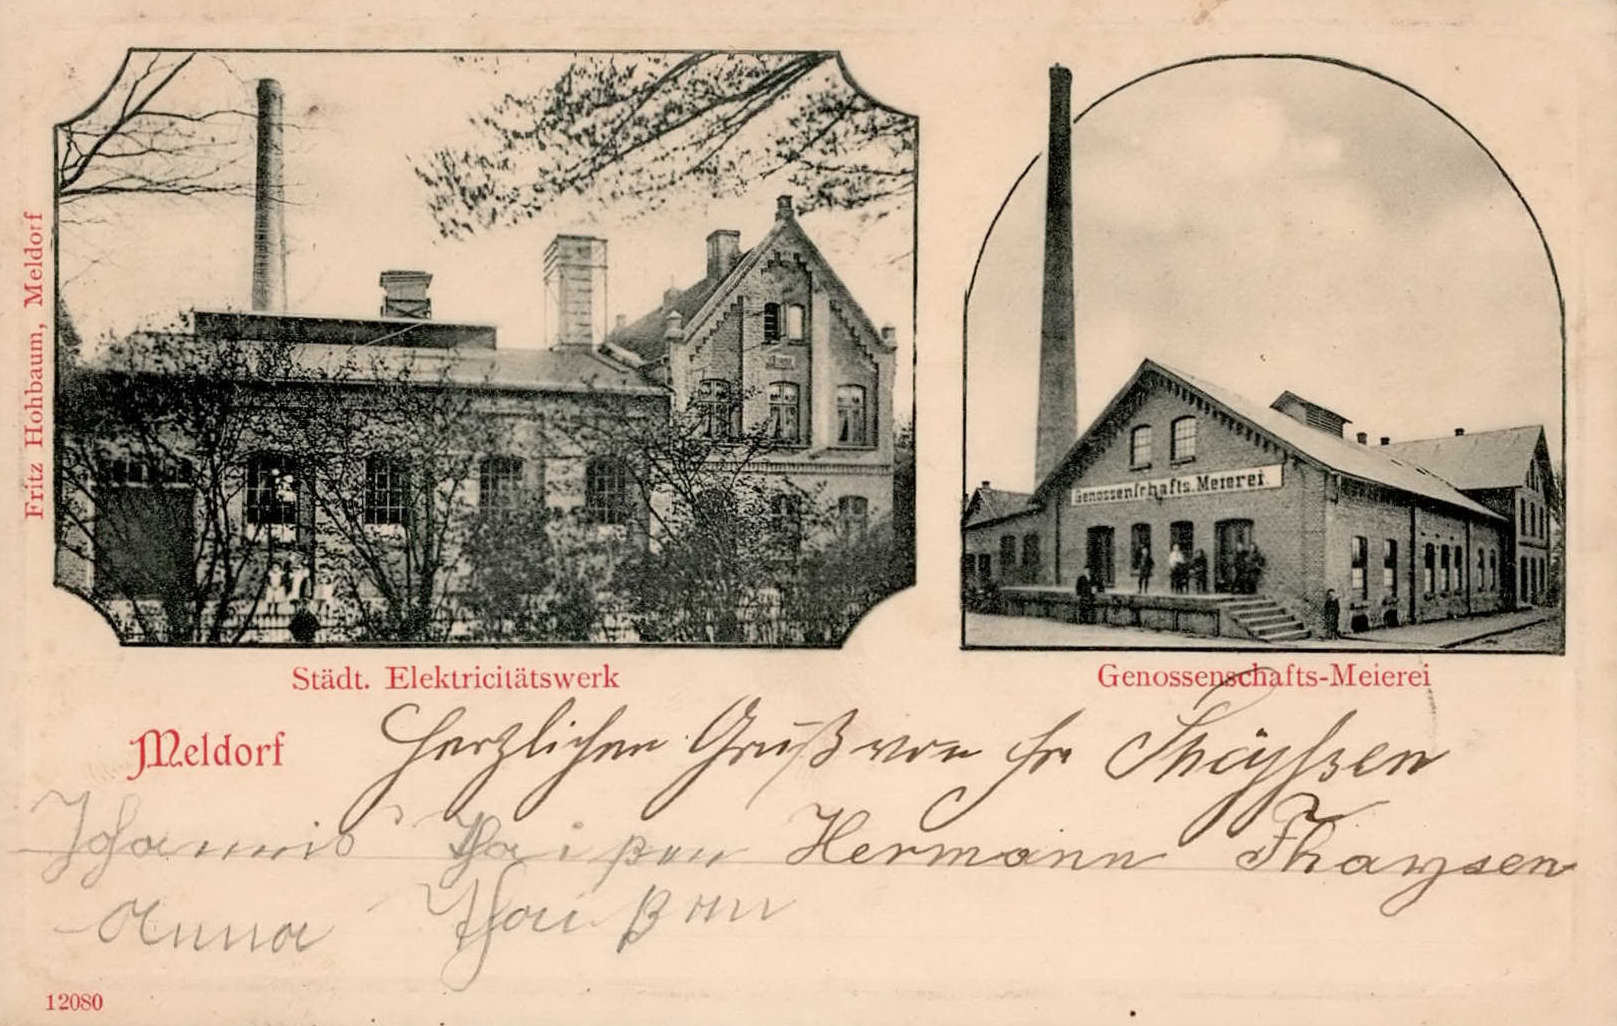 Fritz Hohbaum, Meldorf
Genossenschafts. Meierei.
Städt. Elektricitätswerk
Genossenschafts-Meierei
Meldorf
Herzlichen Gruß von Fr Thäyssen
Johannis Thaißen Hermann Thaysen
Anna Thaißen
12080